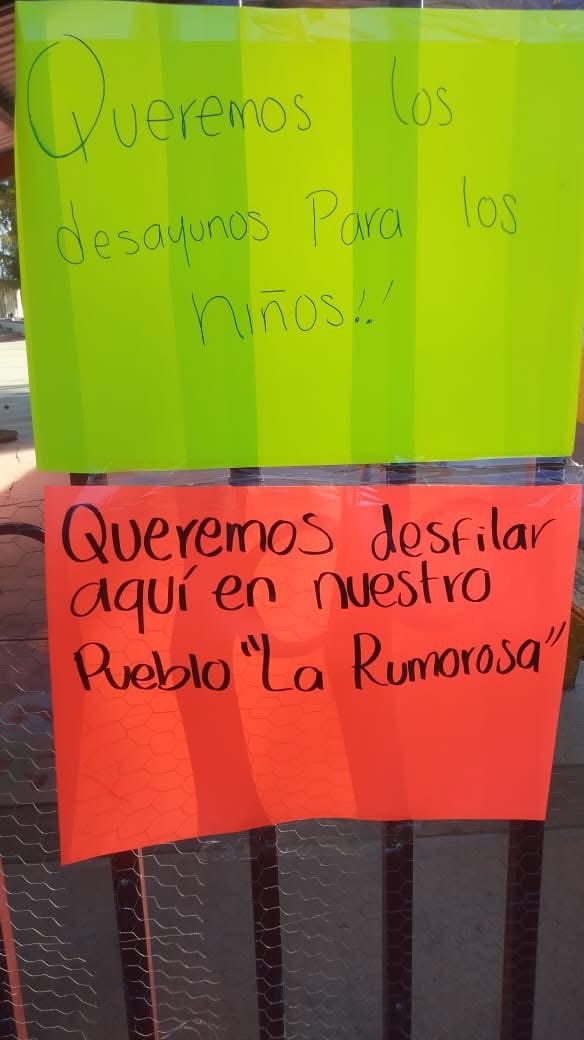 Queremos los
desayunos Para los
niños!!
Queremos desfilar
aquí en nuestro
Pueblo "La Rumorosa"